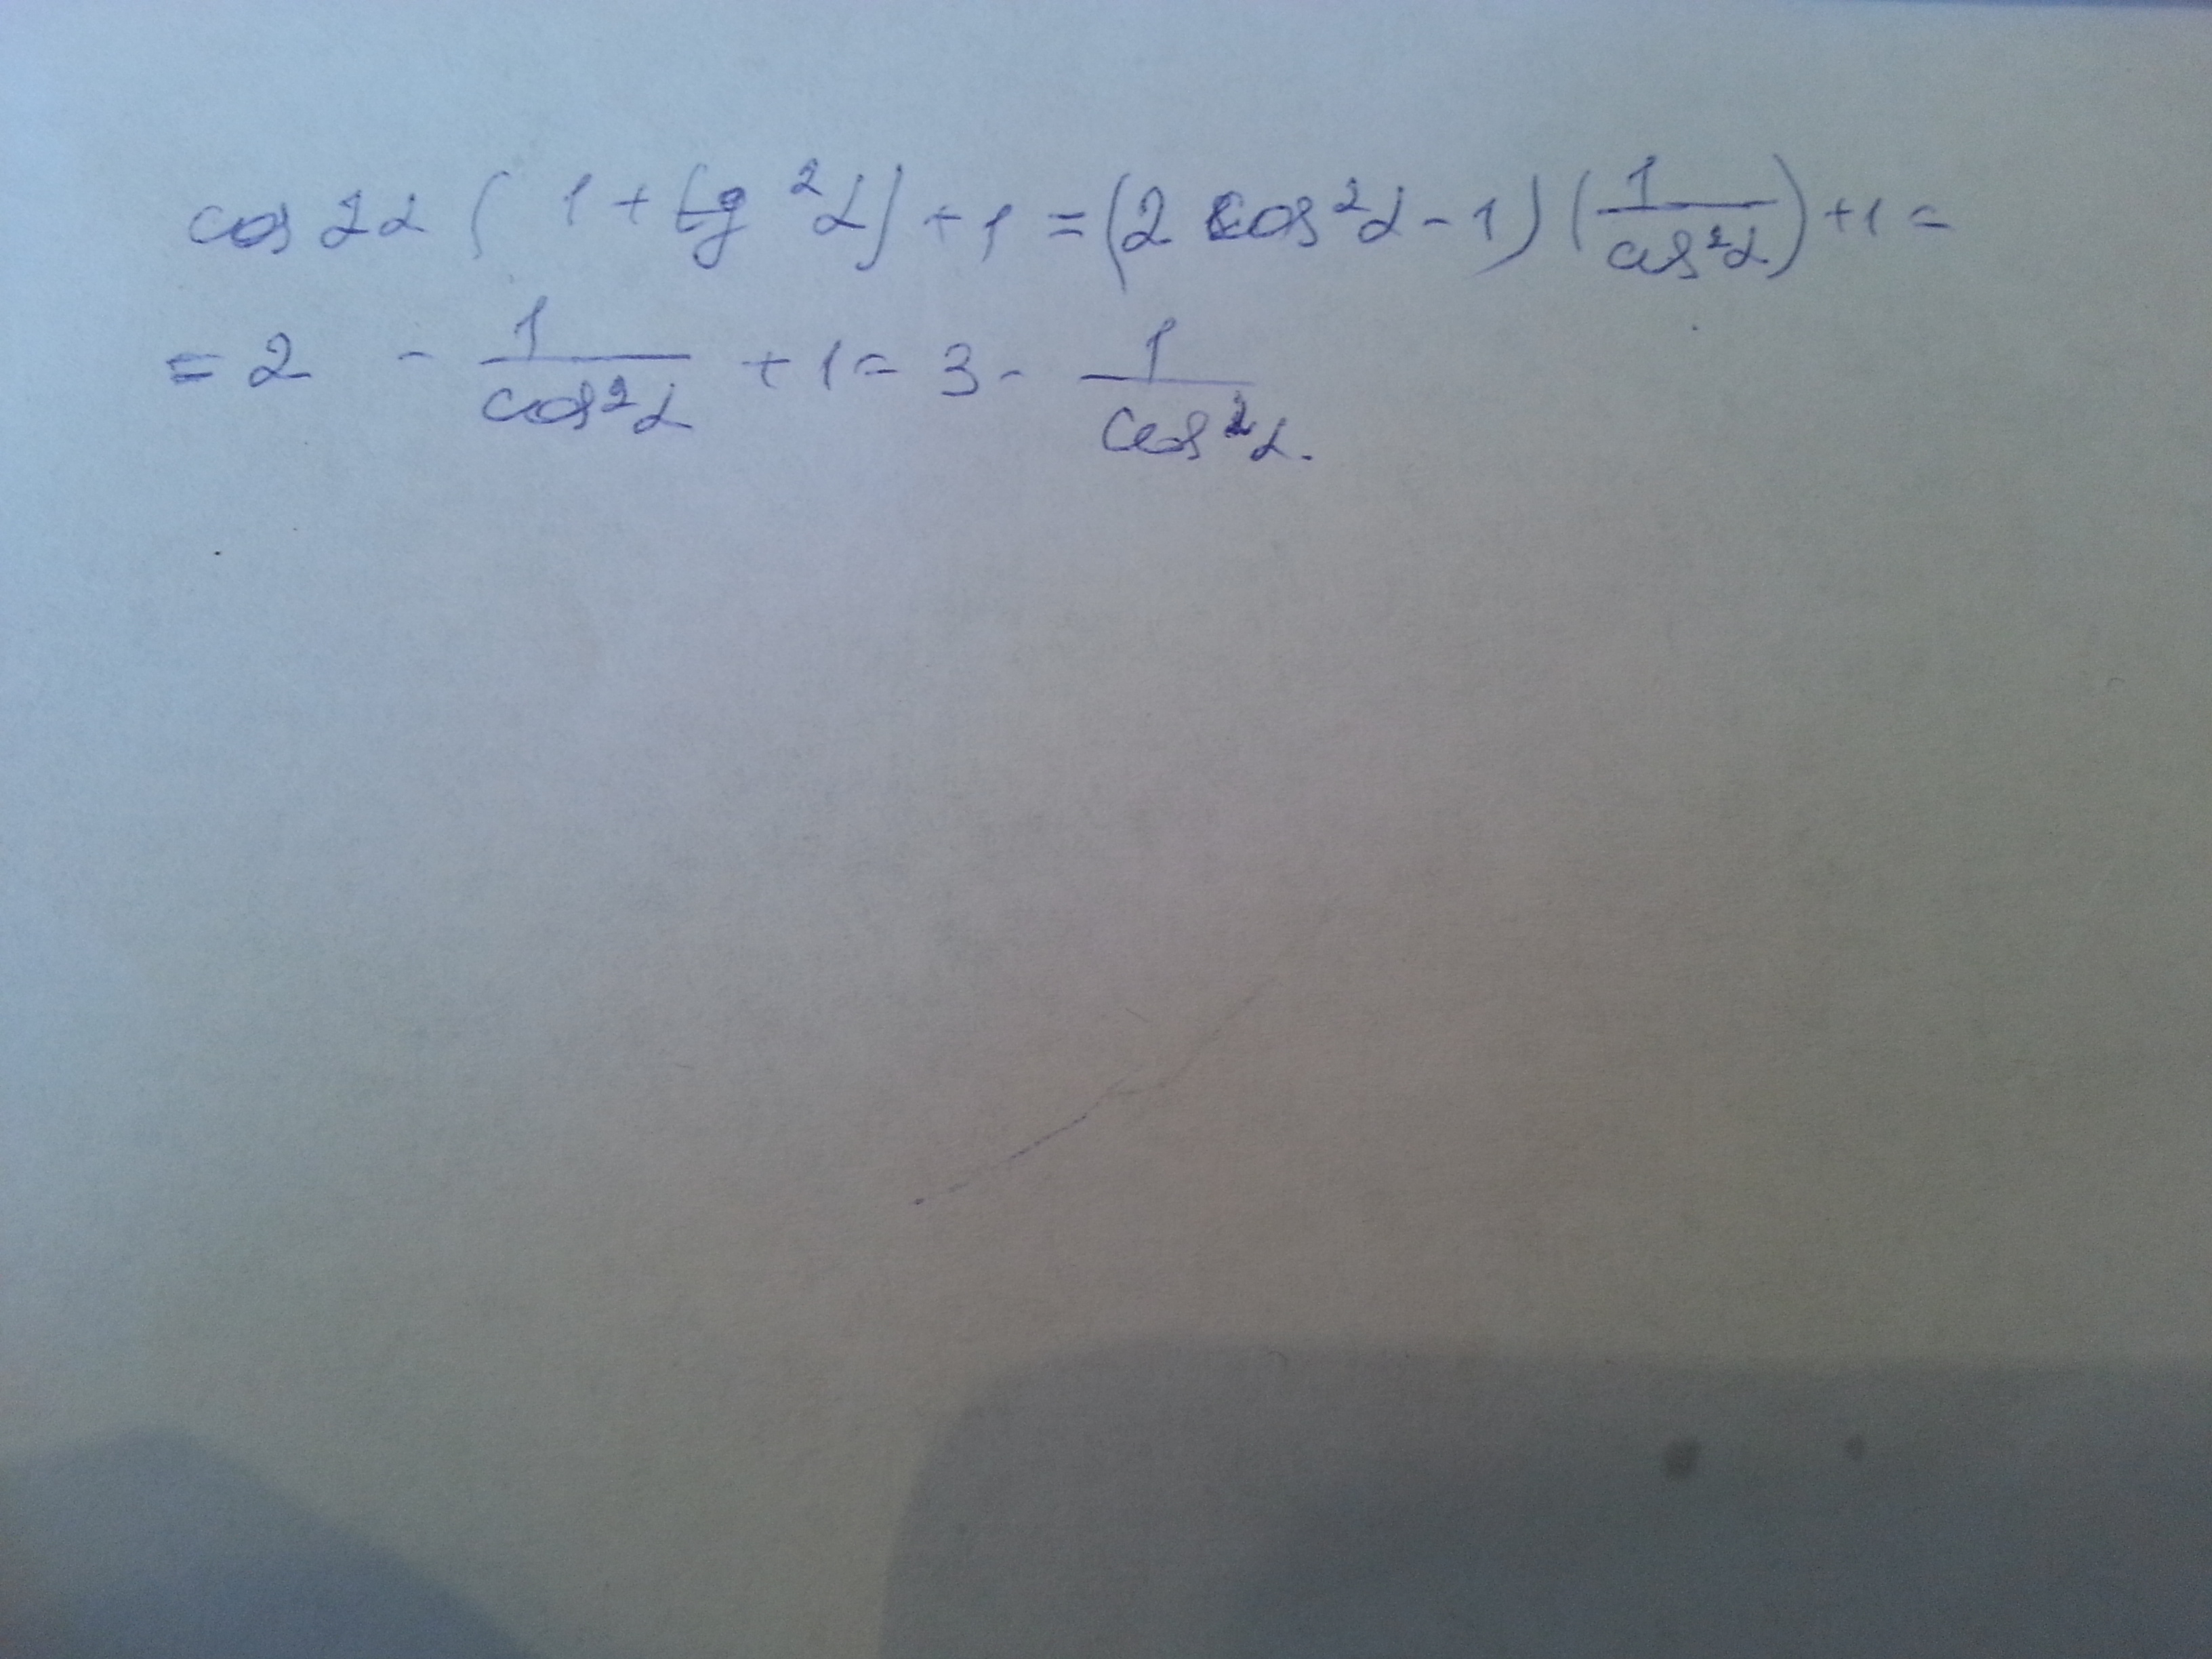 cos 2α ( 1 + tg ²α) + 1 = (2 cos²α - 1) (1/cos²α) + 1 =
= 2 - 1/cos²α + 1 = 3 - 1/cos²α.